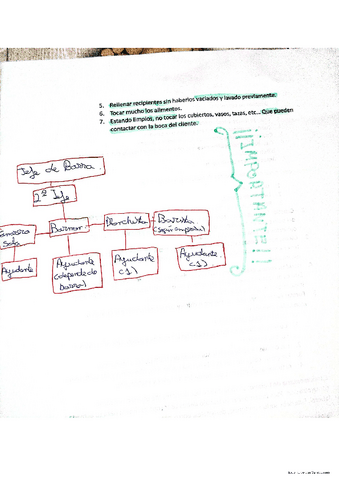 5. Rellenar recipientes sin haberlos vaciados y lavado previamente.
6. Tocar mucho los alimentos.
7. Estando limpios, no tocar los cubiertos, vasos, tazas, etc... Que pueden
contactar con la boca del cliente.
¡¡IMPORTANTE!!
Jefe de Barra
2º Jefe
Sala
Barman
Planchista
Barista
Ayudante
Ayudante
(depende de
barra)
Ayudante
(1)
Ayudante
(1)